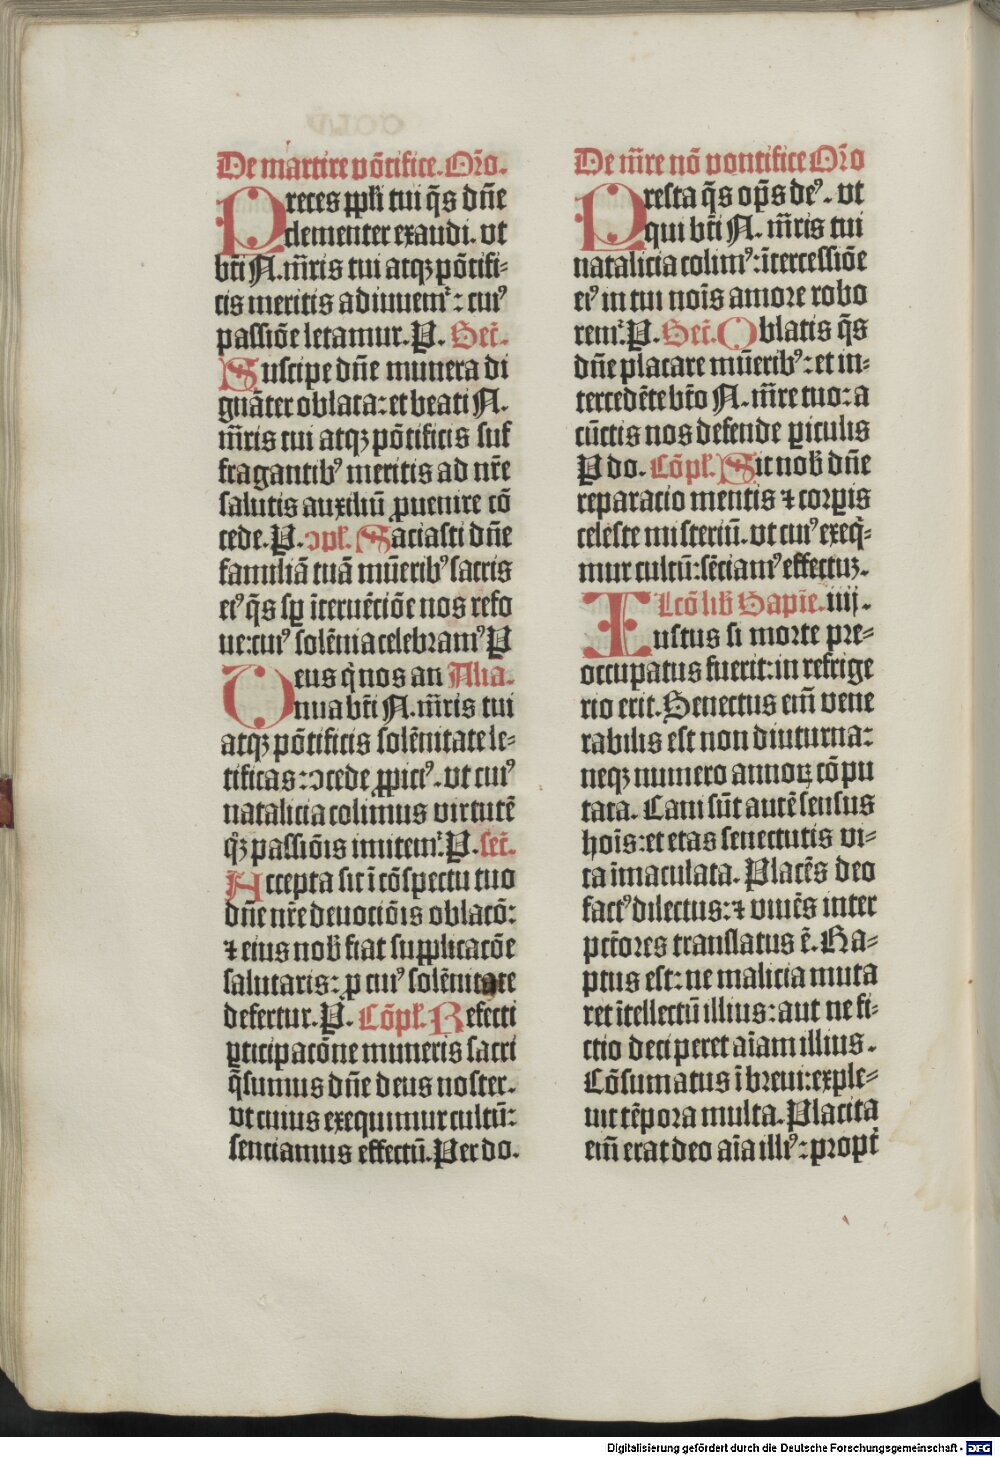 De martire põtifice. Orõ.
Preces ppl'i tui q̃s dñe
clementer exaudi. vt
bt̃i N. m̃ris tui atqꝫ põtifi-
cis meritis adiuuemʳ: cuiꝰ
passiõe letamur. P. Secr̃.
Suscipe dñe munera di
gnãter oblata: et beati N.
m̃ris tui atqꝫ põtificis suf
fragantibꝰ meritis ad nr̃e
salutis auxiliũ ꝓuenire cõ
cede. P. ꝯpl'. Saciasti dñe
familiã tuã mũeribꝰ sacris
eiꝰ q̃s sꝑ ĩteruẽciõe nos refo
ue: cuiꝰ solẽnia celebramꝰ P
Deus q̇ nos an Alia.
nua bt̃i N. m̃ris tui
atqꝫ põtificis solẽnitate le-
tificas: ꝯcede ꝓpiciꝰ. vt cuiꝰ
natalicia colimus virtutẽ
q̊ꝫ passiõis imitemʳ. P. secr̃.
Accepta sit ĩ cõspectu tuo
dñe nr̃e deuociõis oblacõ:
⁊ eius nob̃ fiat supplicacõe
salutaris: ꝓ cuiꝰ solẽnitate
defertur. P. Cõpl'. Refecti
ꝑticipacõne muneris sacri
q̃sumus dñe deus noster.
vt cuius exequimur cultũ:
senciamus effectũ. Per do.
De m̃re nõ pontifice Orõ
Presta q̃s op̃s deꝰ. vt
qui bt̃i N. m̃ris tui
natalicia colimꝰ: ĩtercessiõe
eiꝰ in tui nois̃ amore robo
remʳ. P. Secr̃. Oblatis q̃s
dñe placare mũeribꝰ: et in-
tercedẽte btõ N. m̃re tuo: a
cũctis nos defende ꝑiculis
P do. Cõpl'. Sit nob̃ dñe
reparacio mentis ⁊ corꝑis
celeste misteriũ. vt cuiꝰ exeq̃-
mur cultũ: sẽciamꝰ effectuꝫ.
Lcõ lib̃ Sapiẽ. iiij.
Iustus si morte pre-
occupatus fuerit: in refrige
rio erit. Senectus em̃ vene
rabilis est non diuturna:
neqꝫ numero annoꝝ cõpu
tata. Cani sũt autẽ sensus
hoĩs: et etas senectutis vi-
ta ĩmaculata. Placẽs deo
factꝰ dilectus: ⁊ viuẽs inter
pctõres translatus ẽ. Ra-
ptus est: ne malicia muta
ret ĩtellectũ illius: aut ne fi-
ctio deciperet aĩam illius.
Cõsumatus ĩ breui: exple-
uit tẽpora multa. Placita
em̃ erat deo aĩa illiꝰ: propt̃
Digitalisierung gefördert durch die Deutsche Forschungsgemeinschaft - DFG